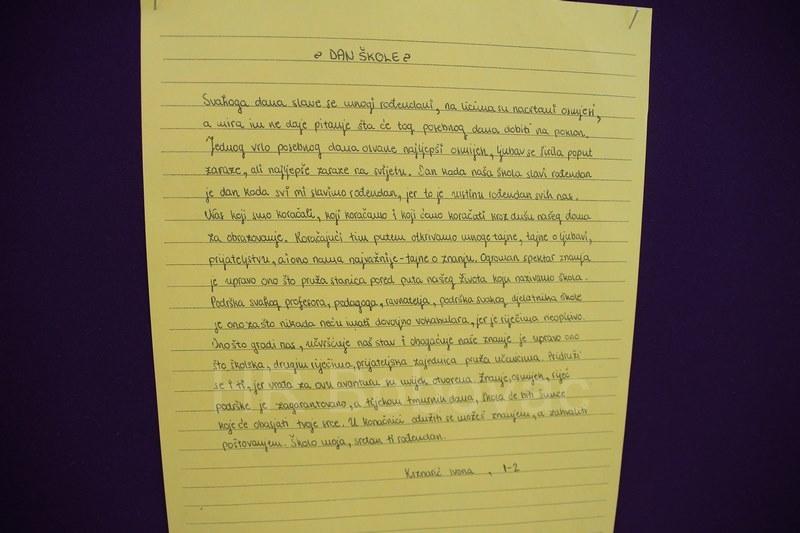 ~ DAN ŠKOLE ~
Svakoga dana slave se mnogi rođendani, na licima su nacrtani osmjesi,
a mira im ne daje pitanje šta će tog posebnog dana dobiti na poklon.
Jednog vrlo posebnog dana osvane najljepši osmijeh, ljubav se širila poput
zaraze, ali najljepše zaraze na svijetu. Dan kada naša škola slavi rođendan
je dan kada svi mi slavimo rođendan, jer to je uistinu rođendan svih nas.
Nas koji smo koračali, koji koračamo i koji ćemo koračati kroz dušu našeg doma
za obrazovanje. Koračajući tim putem otkrivamo mnoge tajne, tajne o ljubavi,
prijateljstvu, a i ono nama najvažnije - tajne o znanju. Ogroman spektar znanja
je upravo ono što pruža stanica pored puta našeg života koju nazivamo škola.
Podrška svakog profesora, pedagoga, ravnatelja, podrška svakog djelatnika škole
je ono za što nikada neću imati dovoljno vokabulara, jer je riječima neopisivo.
Ono što gradi nas, učvršćuje naš stav i obogaćuje naše znanje je upravo ono
što školska, drugim riječima, prijateljska zajednica pruža učenicima. Pridruži
se i ti, jer vrata za ovu avanturu su uvijek otvorena. Znanje, osmijeh, riječ
podrške je zagarantovano, a tijekom tmurnih dana, škola će biti sunce
koje će obasjati tvoje srce. U konačnici odužiti se možeš znanjem, a zahvaliti
poštovanjem. Školo moja, sretan ti rođendan.
Krznarić Ivona , 1-2